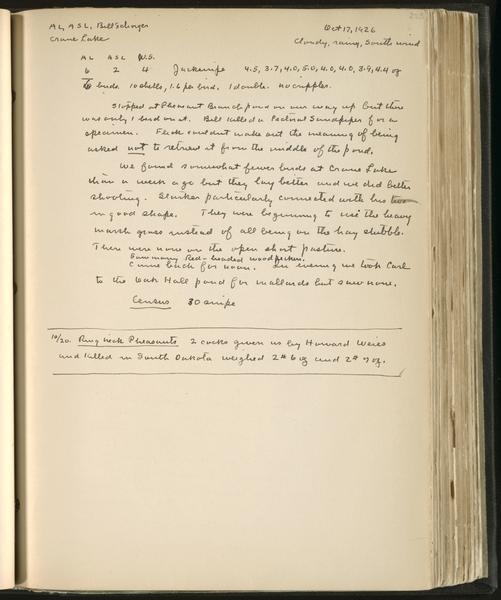 AL, ASL, Bill Schorger Oct 17, 1926
Crane Lake Cloudy, rainy, South wind
AL ASL W.S.
6 2 4 Jacksnipe 4.5, 3.7, 4.0, 5.0, 4.0, 4.0, 3.9, 4.4 oz
birds. 10 shells, 1.6 per bird. 1 double. no cripples.
Stopped at Pheasant Branch pond on our way up but there
was only 1 bird on it. Bill killed a Pectoral Sandpiper for a
specimen. Flick couldn't make out the meaning of being
asked not to retrieve it from the middle of the pond.
We found somewhat fewer birds at Crane Lake
than a week ago but they lay better and we did better
shooting. Starker particularly connected with his two
in good shape. They were beginning to use the heavy
marsh grass instead of all being on the hay stubble.
There were none on the open short pasture.
Saw many Red-headed woodpeckers.
Came back for noon. In evening we took Carl
to the Oak Hall pond for mallards but saw none.
Census 30 snipe
10/20. Ring neck Pheasants 2 cocks given us by Howard Weiss
and killed in South Dakota weighed 2# 6 oz and 2# 7 oz.